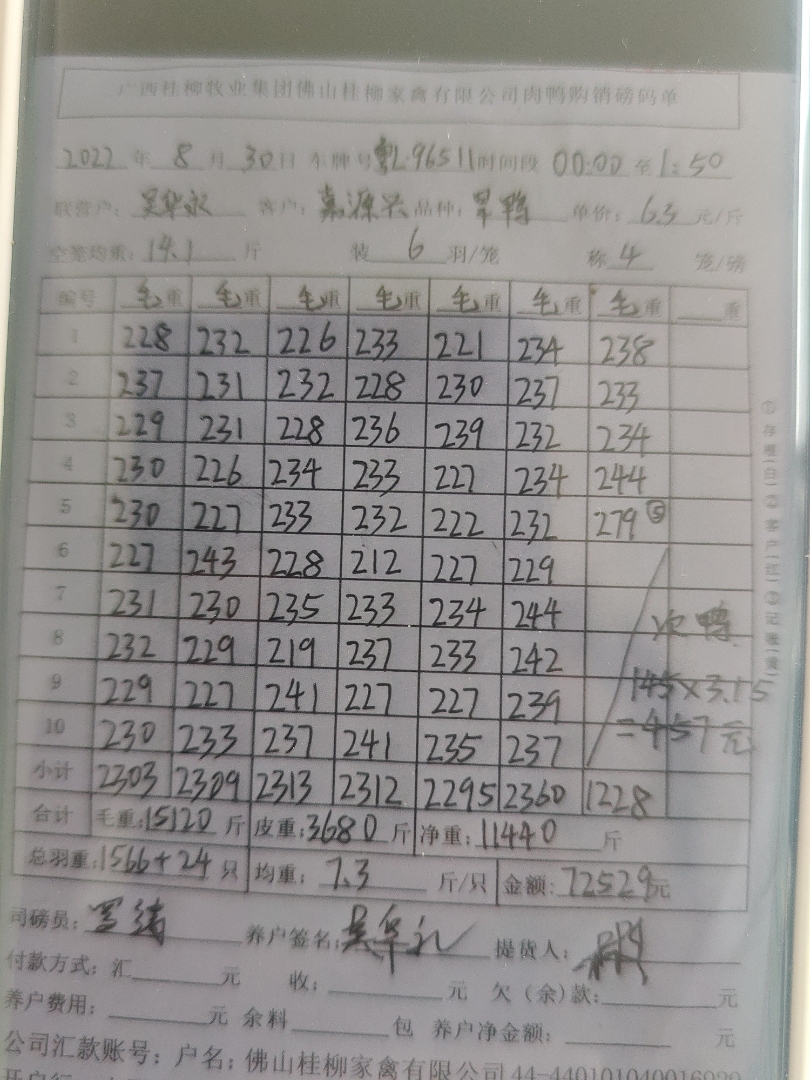 广西桂柳牧业集团佛山桂柳家禽有限公司肉鸭购销磅码单
2022 年 8 月 30 日 车牌号 96511 时间段 00:00 至 1:50
联营户: 吴华永 客户: 嘉源兴 品种: 旱鸭 单价: 6.3 元/斤
空笼均重: 14.1 斤 装 6 羽/笼 称 4 笼/磅
编号 毛重 毛重 毛重 毛重 毛重 毛重 毛重 重
1 228 232 226 233 221 234 238
2 237 231 232 228 230 237 233
3 229 231 228 236 239 232 234
4 230 226 234 233 227 234 244
5 230 227 233 232 222 232 279 ⑤
6 227 243 228 212 227 229
7 231 230 235 233 234 244
8 232 229 219 237 233 242
9 229 227 241 227 227 239
10 230 233 237 241 235 237
次鸭
145×3.15
=457元
小计 2303 2309 2313 2312 2295 2360 1228
合计 毛重: 15120 斤 皮重: 3680 斤 净重: 11440 斤
总羽重: 1566+24 只 均重: 7.3 斤/只 金额: 72529元
司磅员: 养户签名: 吴华永 提货人:
付款方式: 汇 元 收: 元 欠(余)款: 元
养户费用: 元 余料 包 养户净金额: 元
公司汇款账号: 户名: 佛山桂柳家禽有限公司
①存根(白)②客户(红)③记账(黄)